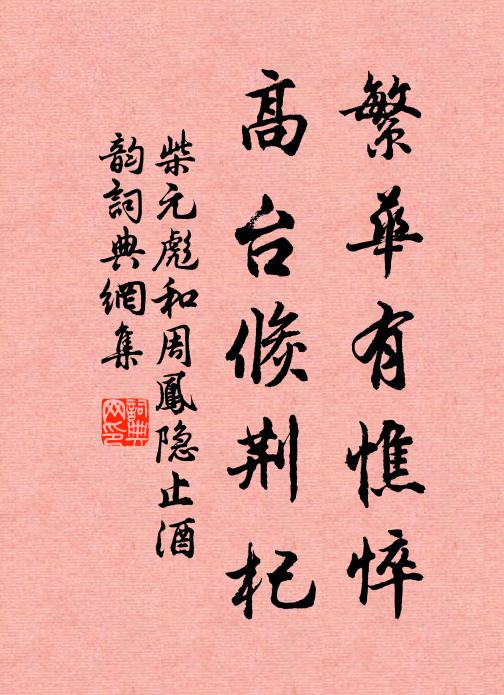 繁華有憔悴
高台倏荆杞
柴元彪和周鳳隐止酒
韵詞典網集
詞典网印